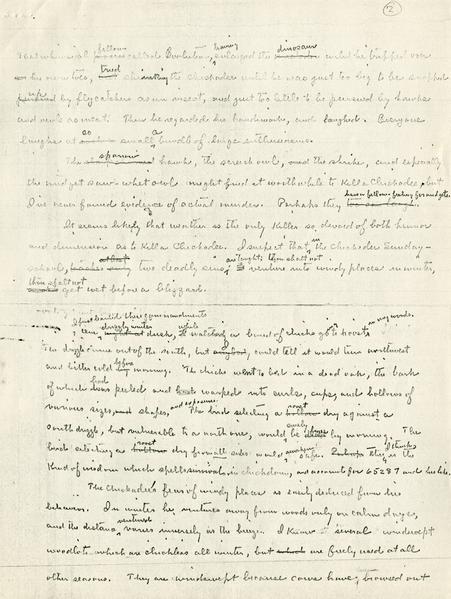 2
fellow having dinosaur
That whimsical called Evolution, enlarged the until he tripped over
tried
his own toes, shrinking the chickadee until he was just too big to be snapped
up
by flycatchers as an insect, and just too little to be pursued by hawks
and owls as meat. Then he regarded his handiwork and laughed. Everyone
so a
laughs at small bundle of large enthusiasms.
sparrow
The hawk, the screech owl, and the shrike, and especially
the midget saw-whet owl might find it worthwhile to kill a chickadee, but
I've never found evidence of actual murder. Perhaps they
It seems likely that weather is the only killer so devoid of both humor
and dimension as to kill a chickadee. I suspect that in chickadee Sunday-
are taught: thou shalt not
school, two deadly sins, venture into windy places in winter,
thou shalt not
get wet before a blizzard.
I learned these commandments
one drizzly winter while
dusk, watching a band of chicks go to roost in my woods.
The drizzle came out of the south, but I could tell it would turn northwest
before
and bitter cold morning. The chicks went to bed in a dead oak, the bark
had
of which peeled and warped into curls, cups, and hollows of
and exposures
various sizes, and shapes, The bird selecting a roost dry against a
surely
south drizzle, but vulnerable to a north one, would be by morning. The
roost
bird selecting a dry from all sides would safe. This is the
kind of wisdom which spells survival in chickdom, and accounts for 65287 and his like.
The chickadee's fear of windy places is easily deduced from his
behavior. In winter he ventures away from woods only on calm days,
and the distance varies inversely as the breeze. I know several windswept
woodlots which are chickless all winter, but are freely used at all
other seasons. They are windswept because cows have browsed out